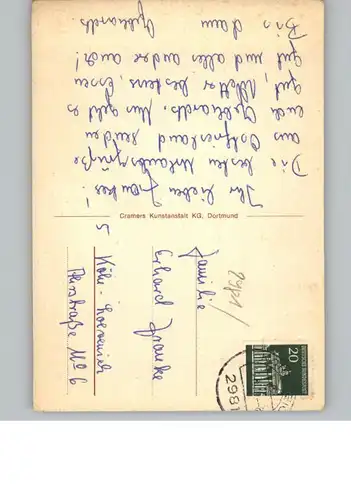 Ihr lieben Frankes!
Die besten Urlaubsgrüße
aus Ostfriesland senden
euch Gebhardts. Uns geht es
gut, Wetter bestens, Essen
gut und alles andre auch!
Bis dann Gebhardts
Cramers Kunstanstalt KG, Dortmund
Familie
Erhard Franke
5 Köln-Lövenich
Perstraße No 6
20
DEUTSCHE BUNDESPOST
298